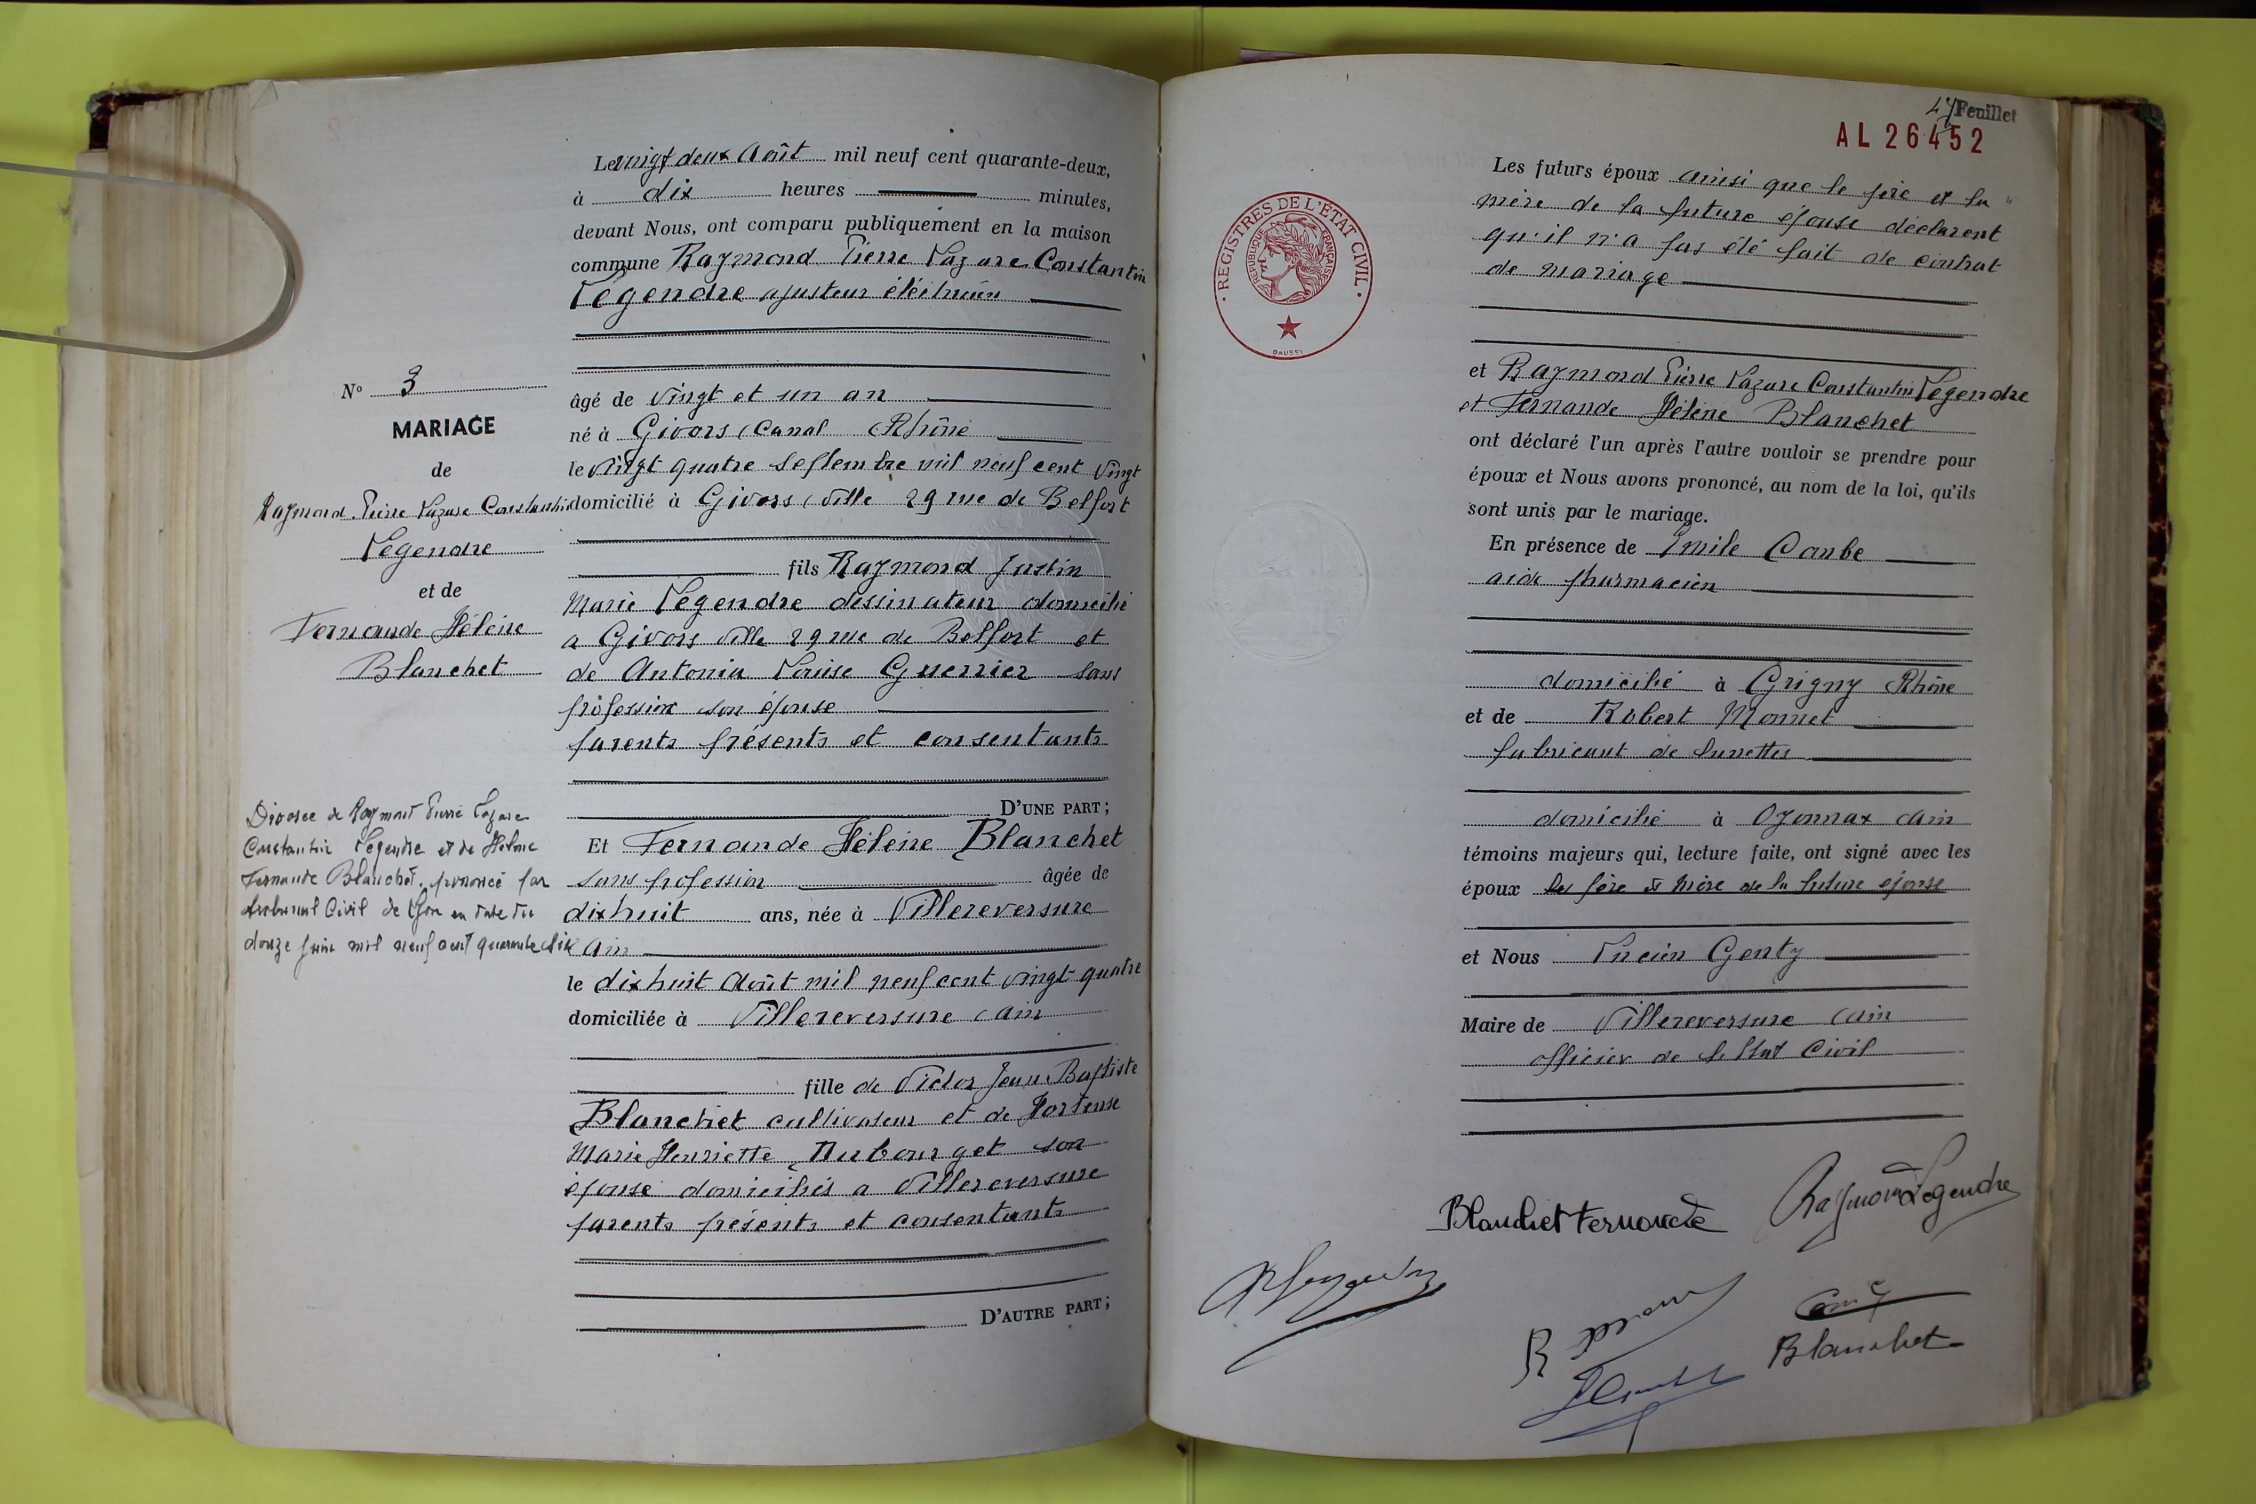 Le vingt deux Août mil neuf cent quarante-deux,
à dix heures minutes,
devant Nous, ont comparu publiquement en la maison
commune Raymond Pierre Lazare Constantin
Legendre ajusteur électricien
N° 3
MARIAGE
de
Raymond Pierre Lazare Constantin
Legendre
et de
Fernande Hélène
Blanchet
âgé de vingt et un an
né à Givors Canal Rhône
le vingt quatre septembre mil neuf cent vingt
domicilié à Givors Ville 29 rue de Belfort
fils Raymond Justin
Marie Legendre dessinateur domicilié
a Givors Ville 29 rue de Belfort et
de Antonia Louise Guerrier sans
profession son épouse
parents présents et consentants
D'UNE PART;
Et Fernande Hélène Blanchet
sans profession âgée de
dix huit ans, née à Villereversure
Ain
le dix huit Août mil neuf cent vingt quatre
domiciliée à Villereversure Ain
fille de Victor Jean Baptiste
Blanchet cultivateur et de Hortense
Marie Henriette Dubourget son
épouse domiciliés a Villereversure
parents présents et consentants
D'AUTRE PART;
Divorce de Raymond Pierre Lazare
Constantin Legendre et de Hélène
Fernande Blanchet prononcé par
tribunal Civil de Lyon en date du
douze juin mil neuf cent quarante six
Feuillet
AL 26452
REGISTRES DE L'ÉTAT CIVIL
RÉPUBLIQUE FRANÇAISE
Les futurs époux ainsi que le père et la
mère de la future épouse déclarent
qu'il n'a pas été fait de contrat
de mariage
et Raymond Pierre Lazare Constantin Legendre
et Fernande Hélène Blanchet
ont déclaré l'un après l'autre vouloir se prendre pour
époux et Nous avons prononcé, au nom de la loi, qu'ils
sont unis par le mariage.
En présence de Emile Combe
aide pharmacien
domicilié à Grigny Rhône
et de Robert Monnet
fabricant de lunettes
domicilié à Oyonnax Ain
témoins majeurs qui, lecture faite, ont signé avec les
époux les père et mère de la future épouse
et Nous Lucien Genty
Maire de Villereversure Ain
officier de l'Etat Civil
Blanchet Fernande
Raymond Legendre
Blanchet